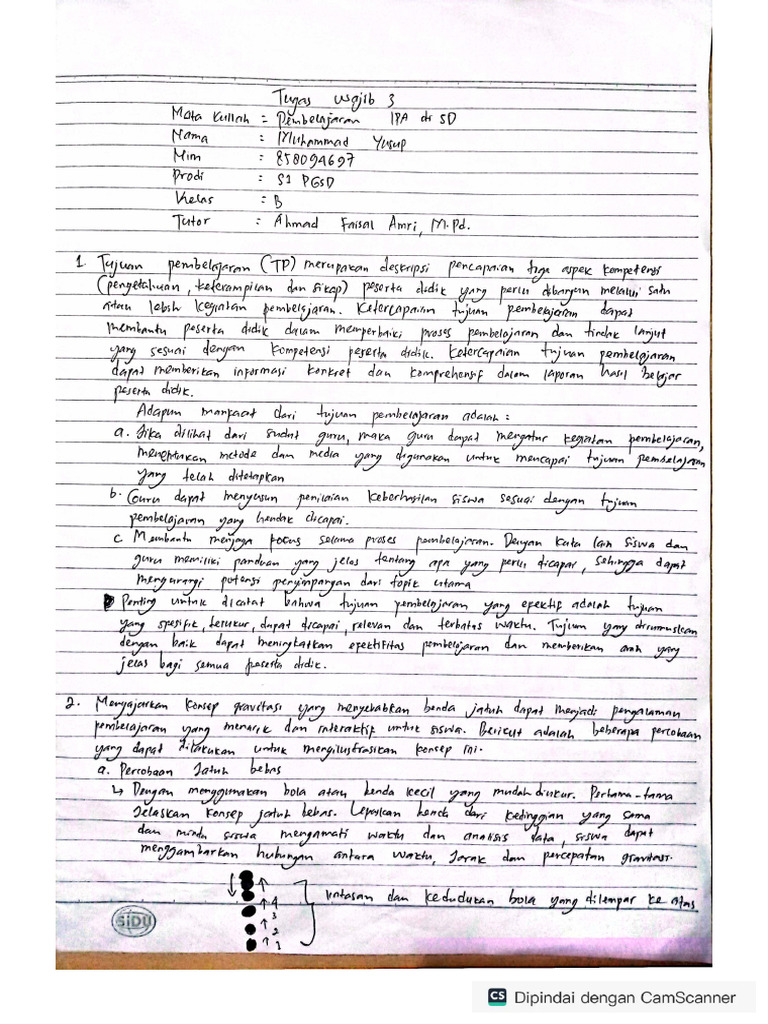 Tugas Wajib 3
Mata Kuliah = Pembelajaran IPA di SD
Nama : Muhammad Yusup
Nim : 858094697
Prodi : S1 PGSD
Kelas : B
Tutor : Ahmad Faisal Amri, M.Pd.
1. Tujuan pembelajaran (TP) merupakan deskripsi pencapaian tiga aspek kompetensi
(pengetahuan, keterampilan dan sikap) peserta didik yang perlu dibangun melalui satu
atau lebih kegiatan pembelajaran. Ketercapaian tujuan pembelajaran dapat
membantu peserta didik dalam memperbaiki proses pembelajaran dan tindak lanjut
yang sesuai dengan kompetensi peserta didik. Ketercapaian tujuan pembelajaran
dapat memberikan informasi konkret dan komprehensif dalam laporan hasil belajar
peserta didik.
Adapun manfaat dari tujuan pembelajaran adalah :
a. Jika dilihat dari sudut guru, maka guru dapat mengatur kegiatan pembelajaran,
menentukan metode dan media yang digunakan untuk mencapai tujuan pembelajaran
yang telah ditetapkan
b. Guru dapat menyusun penilaian keberhasilan siswa sesuai dengan tujuan
pembelajaran yang hendak dicapai.
c. Membantu menjaga focus selama proses pembelajaran. Dengan kata lain siswa dan
guru memiliki panduan yang jelas tentang apa yang perlu dicapai, sehingga dapat
mengurangi potensi penyimpangan dari topik utama
Penting untuk dicatat bahwa tujuan pembelajaran yang efektif adalah tujuan
yang spesifik, terukur, dapat dicapai, relevan dan terbatas waktu. Tujuan yang dirumuskan
dengan baik dapat meningkatkan efektifitas pembelajaran dan memberikan arah yang
jelas bagi semua peserta didik.
2. Mengajarkan konsep gravitasi yang menyebabkan benda jatuh dapat menjadi pengalaman
pembelajaran yang menarik dan interaktif untuk siswa. Berikut adalah beberapa percobaan
yang dapat dilakukan untuk mengilustrasikan konsep ini.
a. Percobaan Jatuh bebas
↳ Dengan menggunakan bola atau benda kecil yang mudah diukur. Pertama-tama
Jelaskan konsep jatuh bebas. Lepaskan benda dari ketinggian yang sama
dan minta siswa mengamati waktu dan analisis data, siswa dapat
menggambarkan hubungan antara waktu, Jarak dan percepatan gravitasi.
lintasan dan kedudukan bola yang dilempar ke atas
4
3
2
1
SIDU
CS Dipindai dengan CamScanner